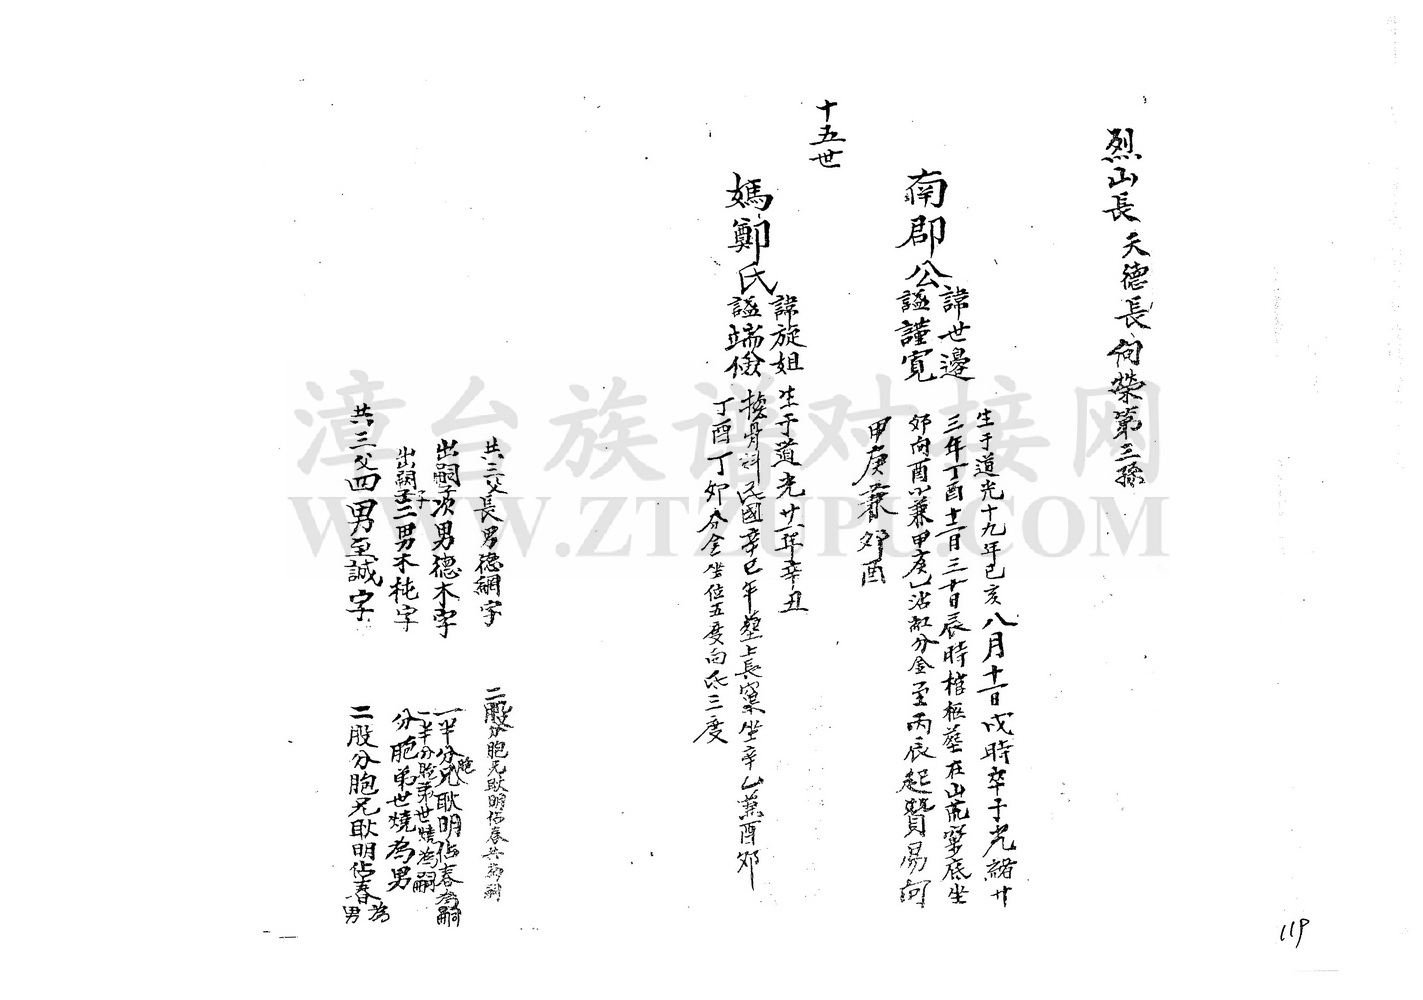 烈山長 天德長 向榮第三孫
南郡公
諱世邊
謚謹寬
生于道光十九年己亥八月十一日戌時卒于光緒廿
三年丁酉十二月三十日辰時棺柩塟在山荒窠底坐
夘向酉小兼甲庚山沾缸分金至丙辰起贊易向
甲庚兼夘酉
十五世
媽鄭氏
諱旋姐
謚端儉
生于道光廿一年辛丑
換骨料民國辛巳年塟上長窠坐辛乙兼酉夘
丁酉丁夘分金坐位五度向氐三度
共三父長男德綱字
二股分胞兄耿明佔春共為嗣
出嗣次男德木字
一半分胞兄耿明佔春為嗣
一半分胞弟世燒為嗣
出嗣子二男木純字
分胞弟世燒為男
共三父四男至誠字
二股分胞兄耿明佔春為男
119
漳台族谱对接网
WWW.ZTZUPU.COM